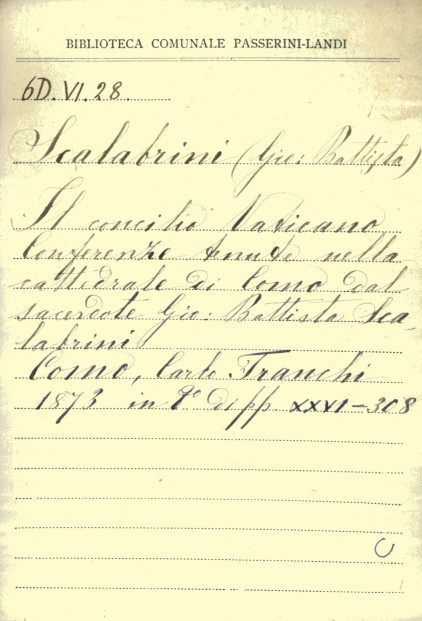 BIBLIOTECA COMUNALE PASSERINI-LANDI
6D.VI.28.
Scalabrini (Gio: Battista)
Il concilio Vaticano
Conferenze tenute nella
cattedrale di Como dal
sacerdote Gio: Battista Sca-
labrini
Como, Carlo Franchi
1873 in 8º di pp XXVI-308
C